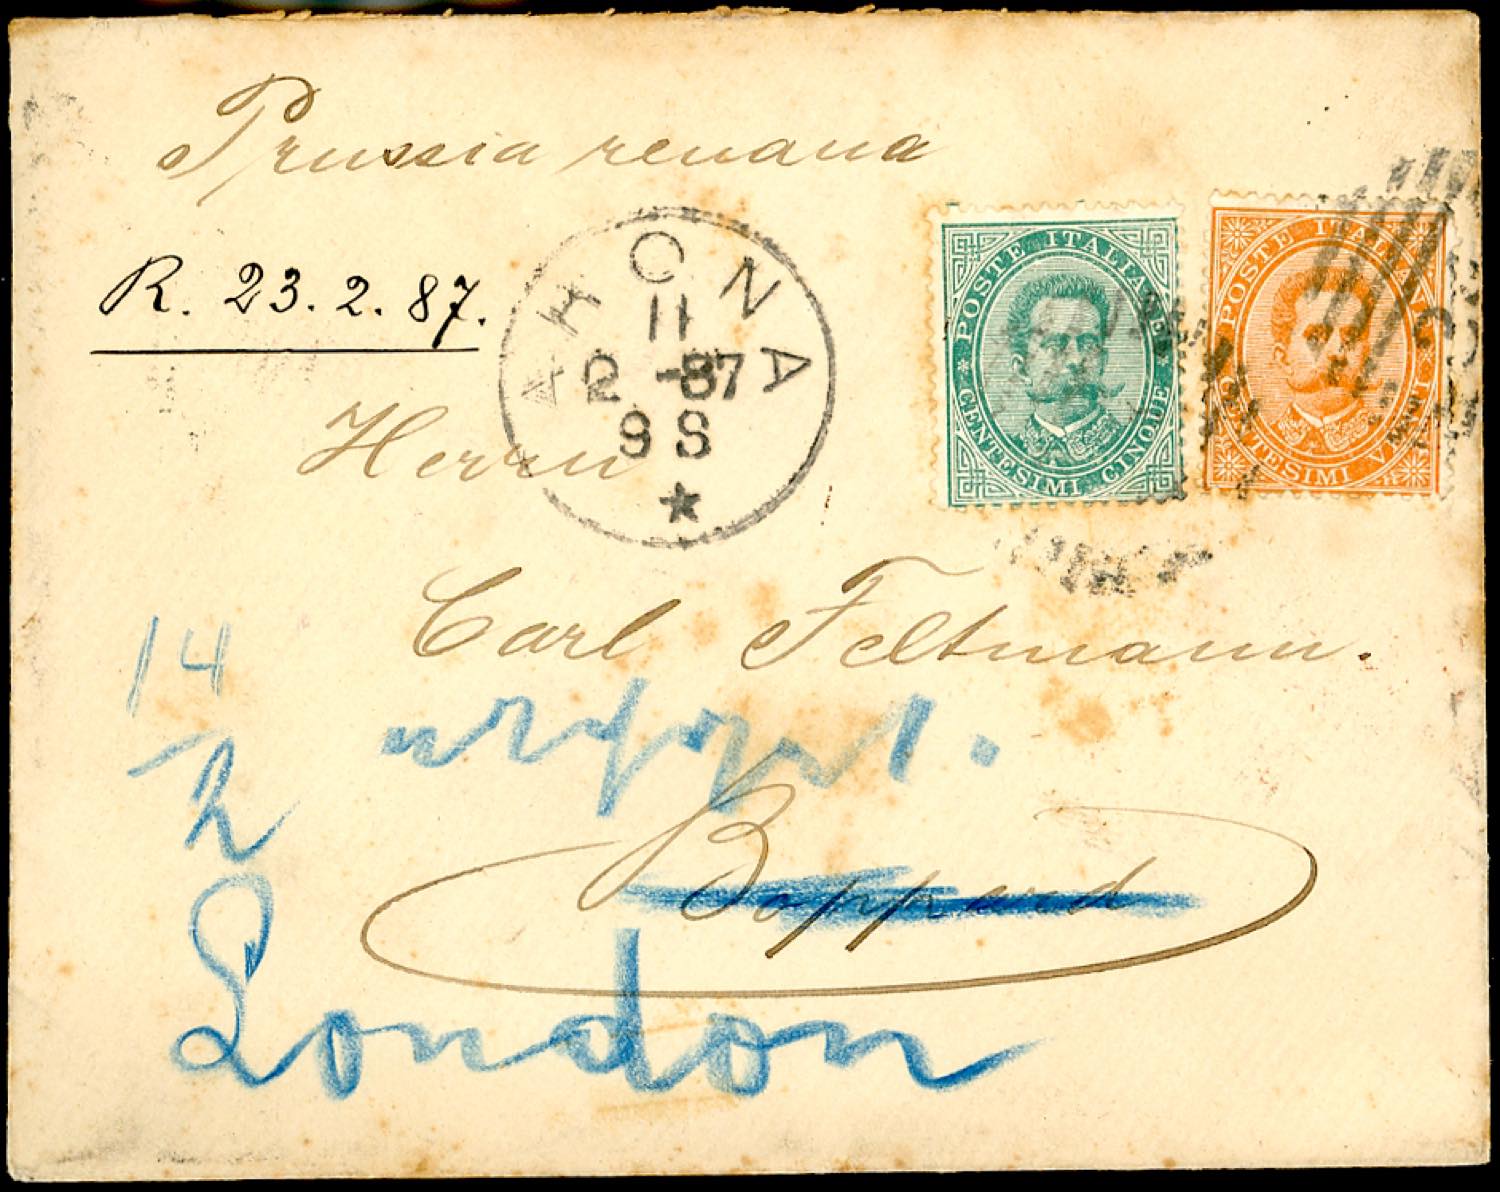 Prussia renana
R. 23. 2. 87.
ANCONA
11
2 - 87
9 S
POSTE ITALIANE
CENTESIMI CINQUE
POSTE ITALIANE
CENTESIMI VENTI
Herrn
Carl Feltmann.
14
2
Boppard
London